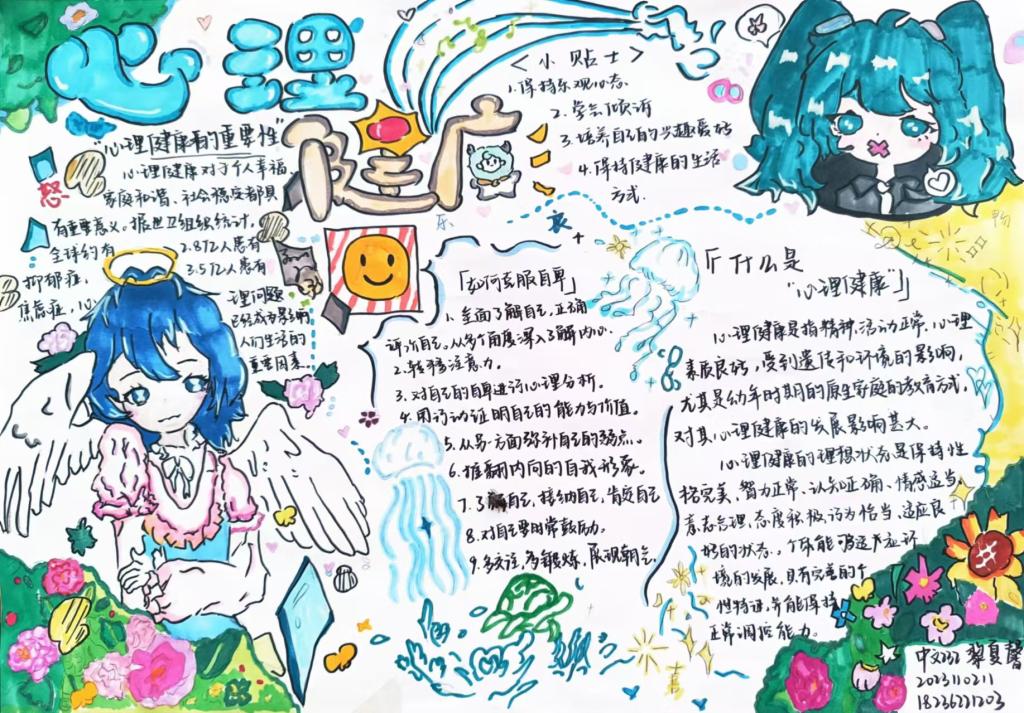 心理
健康
“心理健康的重要性”
心理健康对于个人幸福、
家庭和谐、社会稳定都具
有重要意义。据世卫组织统计,
全球约有
2.8亿人患有
抑郁症,
3.5亿人患有
焦虑症,心
理问题
已经成为影响
人们生活的
重要因素
怒
乐
哀
喜
<小贴士>
1.保持乐观心态
2.学会倾诉
3.培养自己的兴趣爱好
4.保持健康的生活
方式.
「如何克服自卑」
1.全面了解自己,正确
评价自己。从多个角度深入了解内心.
2.转移注意力。
3.对自己的自卑进行心理分析。
4.用行动证明自己的能力与价值。
5.从另一方面弥补自己的弱点。
6.推翻内向的自我形象。
7.了解自己,接纳自己,肯定自己
8.对自己要时常鼓励。
9.多交往,多锻炼,展现朝气。
「什么是
“心理健康”」
心理健康是指精神、活动正常、心理
素质良好,受到遗传和环境的影响,
尤其是幼年时期的原生家庭的教育方式,
对其心理健康的发展影响甚大。
心理健康的理想状态是保持性
格完美、智力正常、认知正确、情感适当、
意志合理、态度积极、行为恰当、适应良
好的状态。个体能够适应环
境的发展,具有完善的个
性特征,并能保持
正常调控能力。
中文232 黎夏馨
2023110211
18236221203